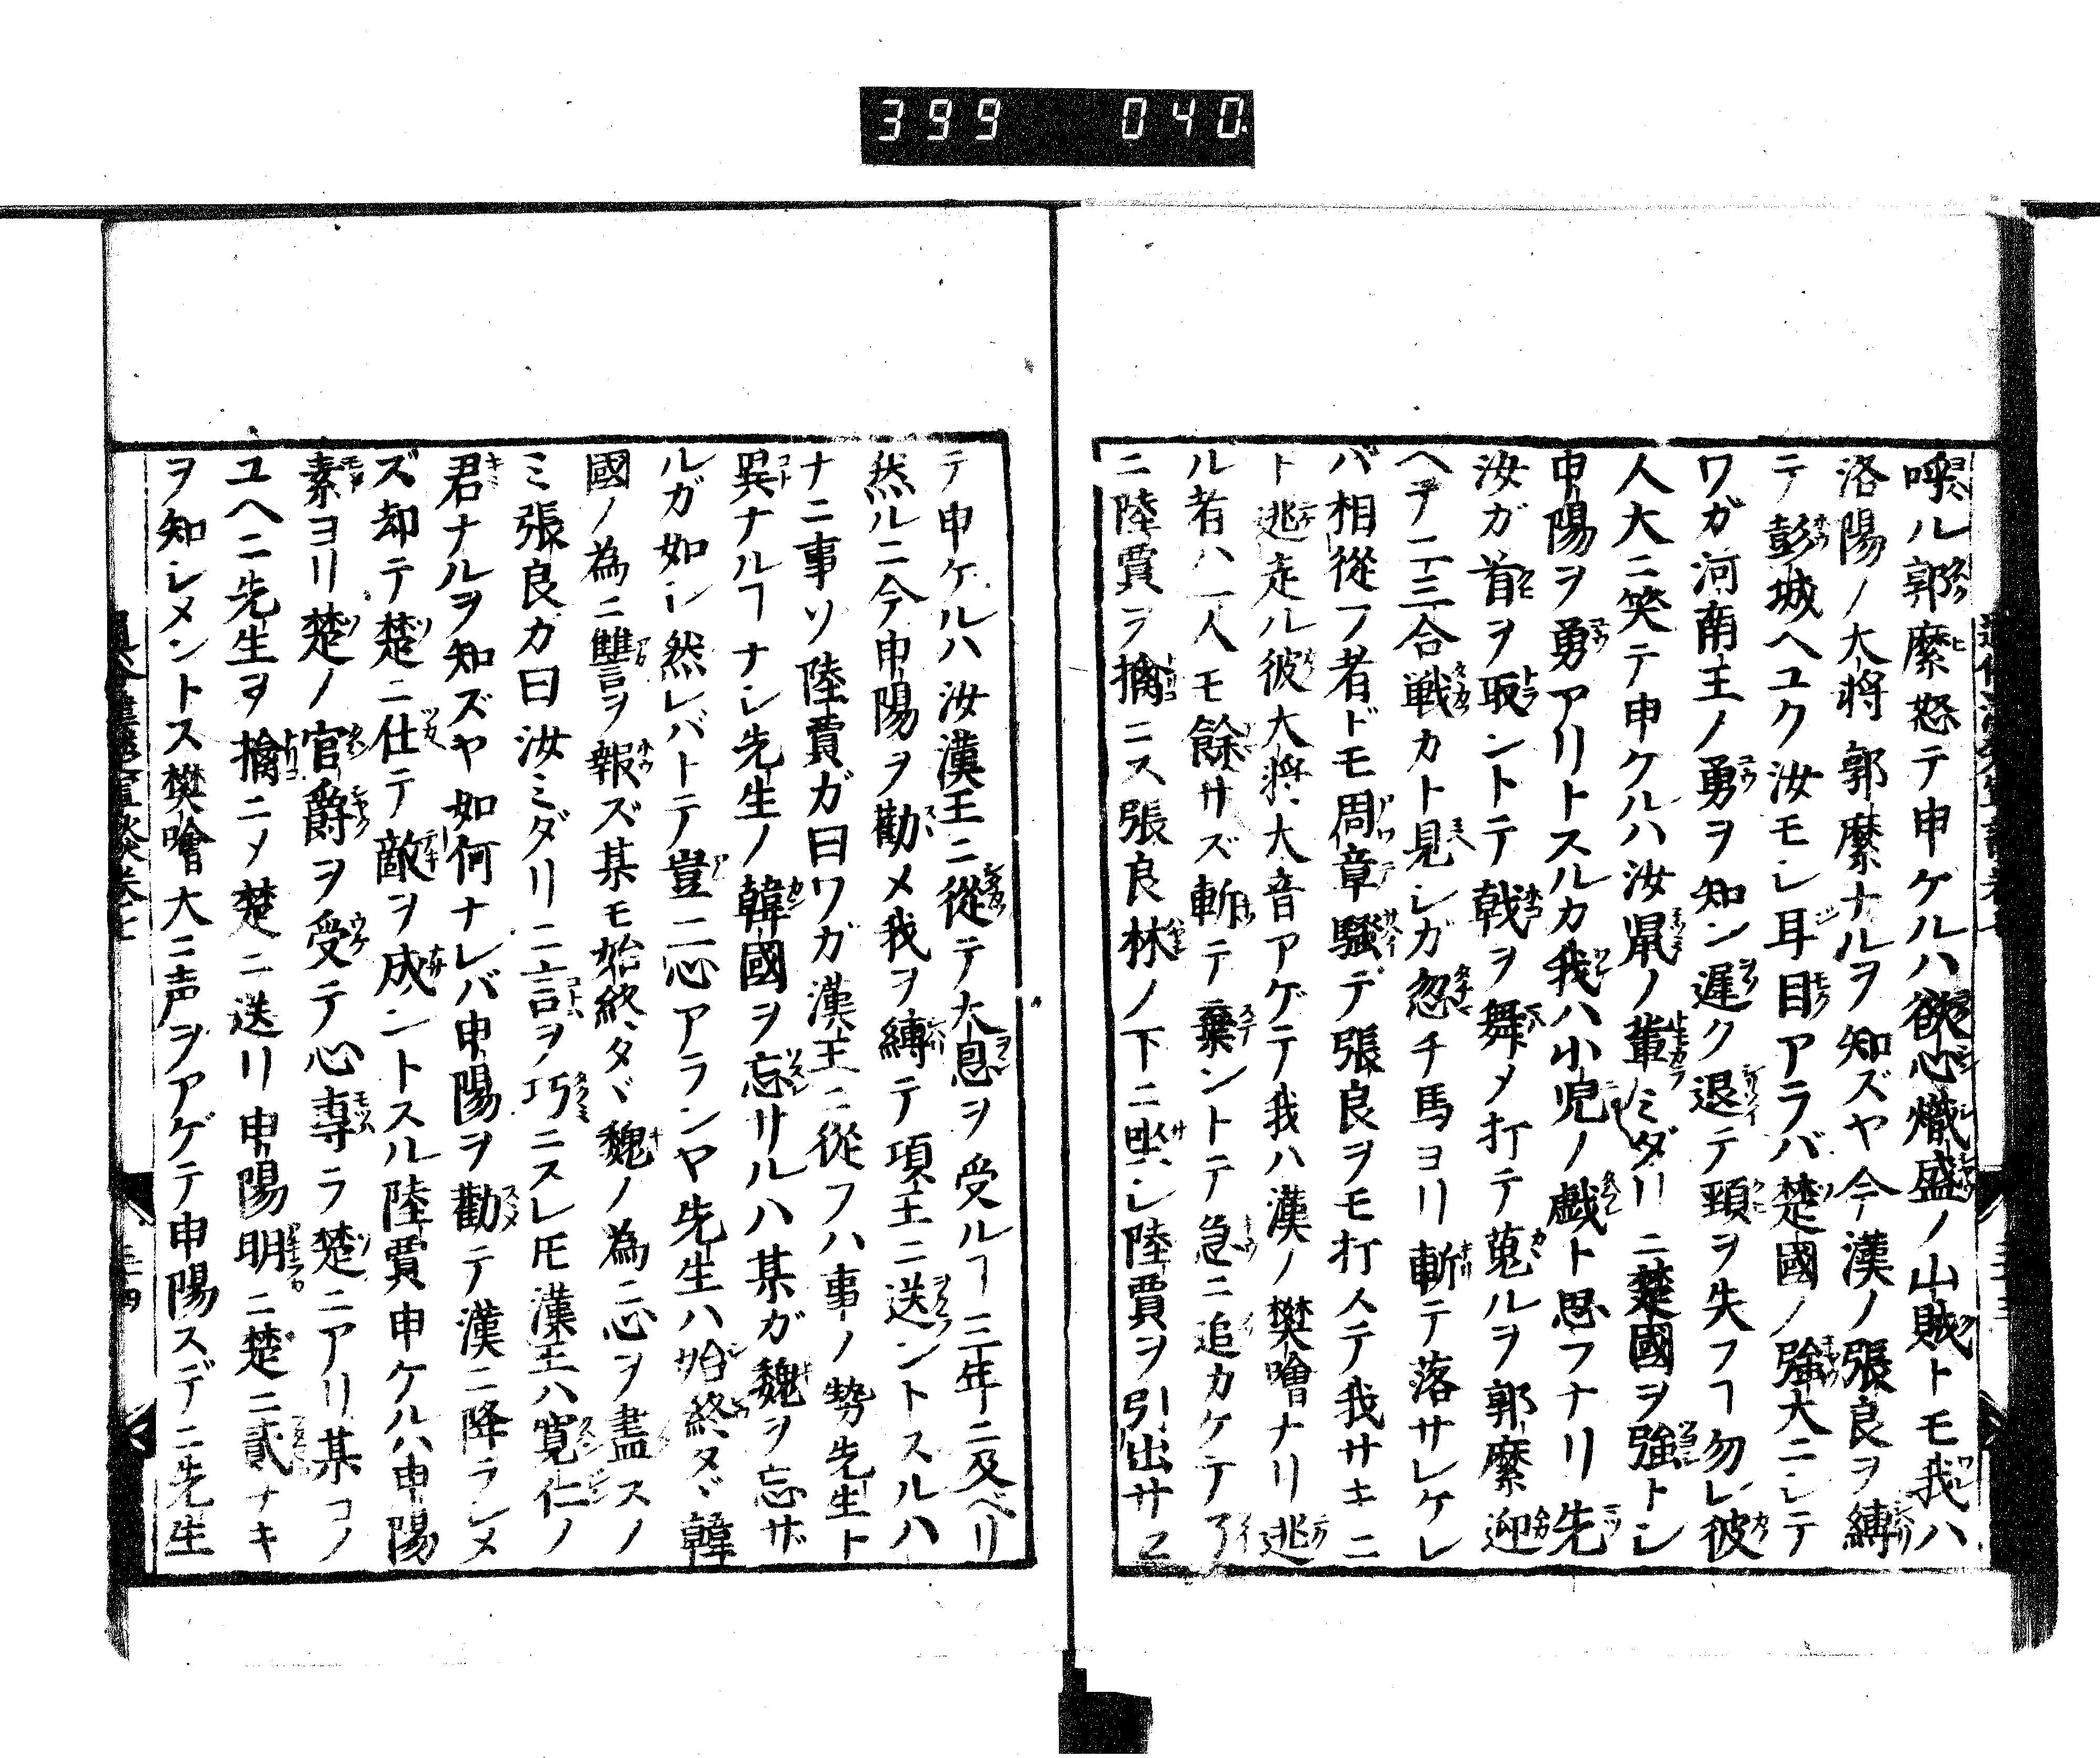 399 040
呼ル郭縻怒テ申ケルハ欲心熾盛ノ山賊トモ我ハ
洛陽ノ大将郭縻ナルヲ知ズヤ今漢ノ張良ヲ縛
テ彭城ヘユク汝モシ耳目アラバ楚國ノ強大ニシテ
ワガ河南王ノ勇ヲ知ン遅ク退テ頸ヲ失フヿ勿レ彼
人大ニ笑テ申ケルハ汝鼠ノ輩ミダリニ楚國ヲ強トシ
申陽ヲ勇アリトスルカ我ハ小児ノ戯ト思フナリ先
汝ガ首ヲ取ントテ戟ヲ舞メ打テ蒐ルヲ郭縻迎
ヘテ二三合戦カト見シガ忽チ馬ヨリ斬テ落サレケレ
バ相從フ者ドモ周章騒デ張良ヲモ打ステ我サキニ
ト逃走ル彼大将大音アゲテ我ハ漢ノ樊噲ナリ逃
ル者ハ一人モ餘サズ斬テ棄ントテ急ニ追カケテ了
ニ陸賈ヲ擒ニス張良林ノ下ニ坐シ陸賈ヲ引出サセ
テ申ケルハ汝漢王ニ從テ大恩ヲ受ルヿ三年ニ及ベリ
然ルニ今申陽ヲ勸メ我ヲ縛テ項王ニ送ントスルハ
ナニ事ソ陸賈ガ曰ワガ漢王ニ從フハ事ノ勢先生ト
異ナルヿナシ先生ノ韓國ヲ忘サルハ某ガ魏ヲ忘ザ
ルガ如シ然レバトテ豈二心アランヤ先生ハ始終タヾ韓
國ノ為ニ讐ヲ報ズ某モ始終タヾ魏ノ為ニ心ヲ盡スノ
ミ張良カ曰汝ミダリニ言ヲ巧ニスレ𪜈漢王ハ寛仁ノ
君ナルヲ知ズヤ如何ナレバ申陽ヲ勸テ漢ニ降ラシメ
ズ却テ楚ニ仕テ敵ヲ成ントスル陸賈申ケルハ申陽
素ヨリ楚ノ官爵ヲ受テ心専ラ楚ニアリ某コノ
ユヘニ先生ヲ擒ニメ楚ニ送リ申陽明ニ楚ニ貳ナキ
ヲ知シメントス樊噲大ニ声ヲアゲテ申陽スデニ先生